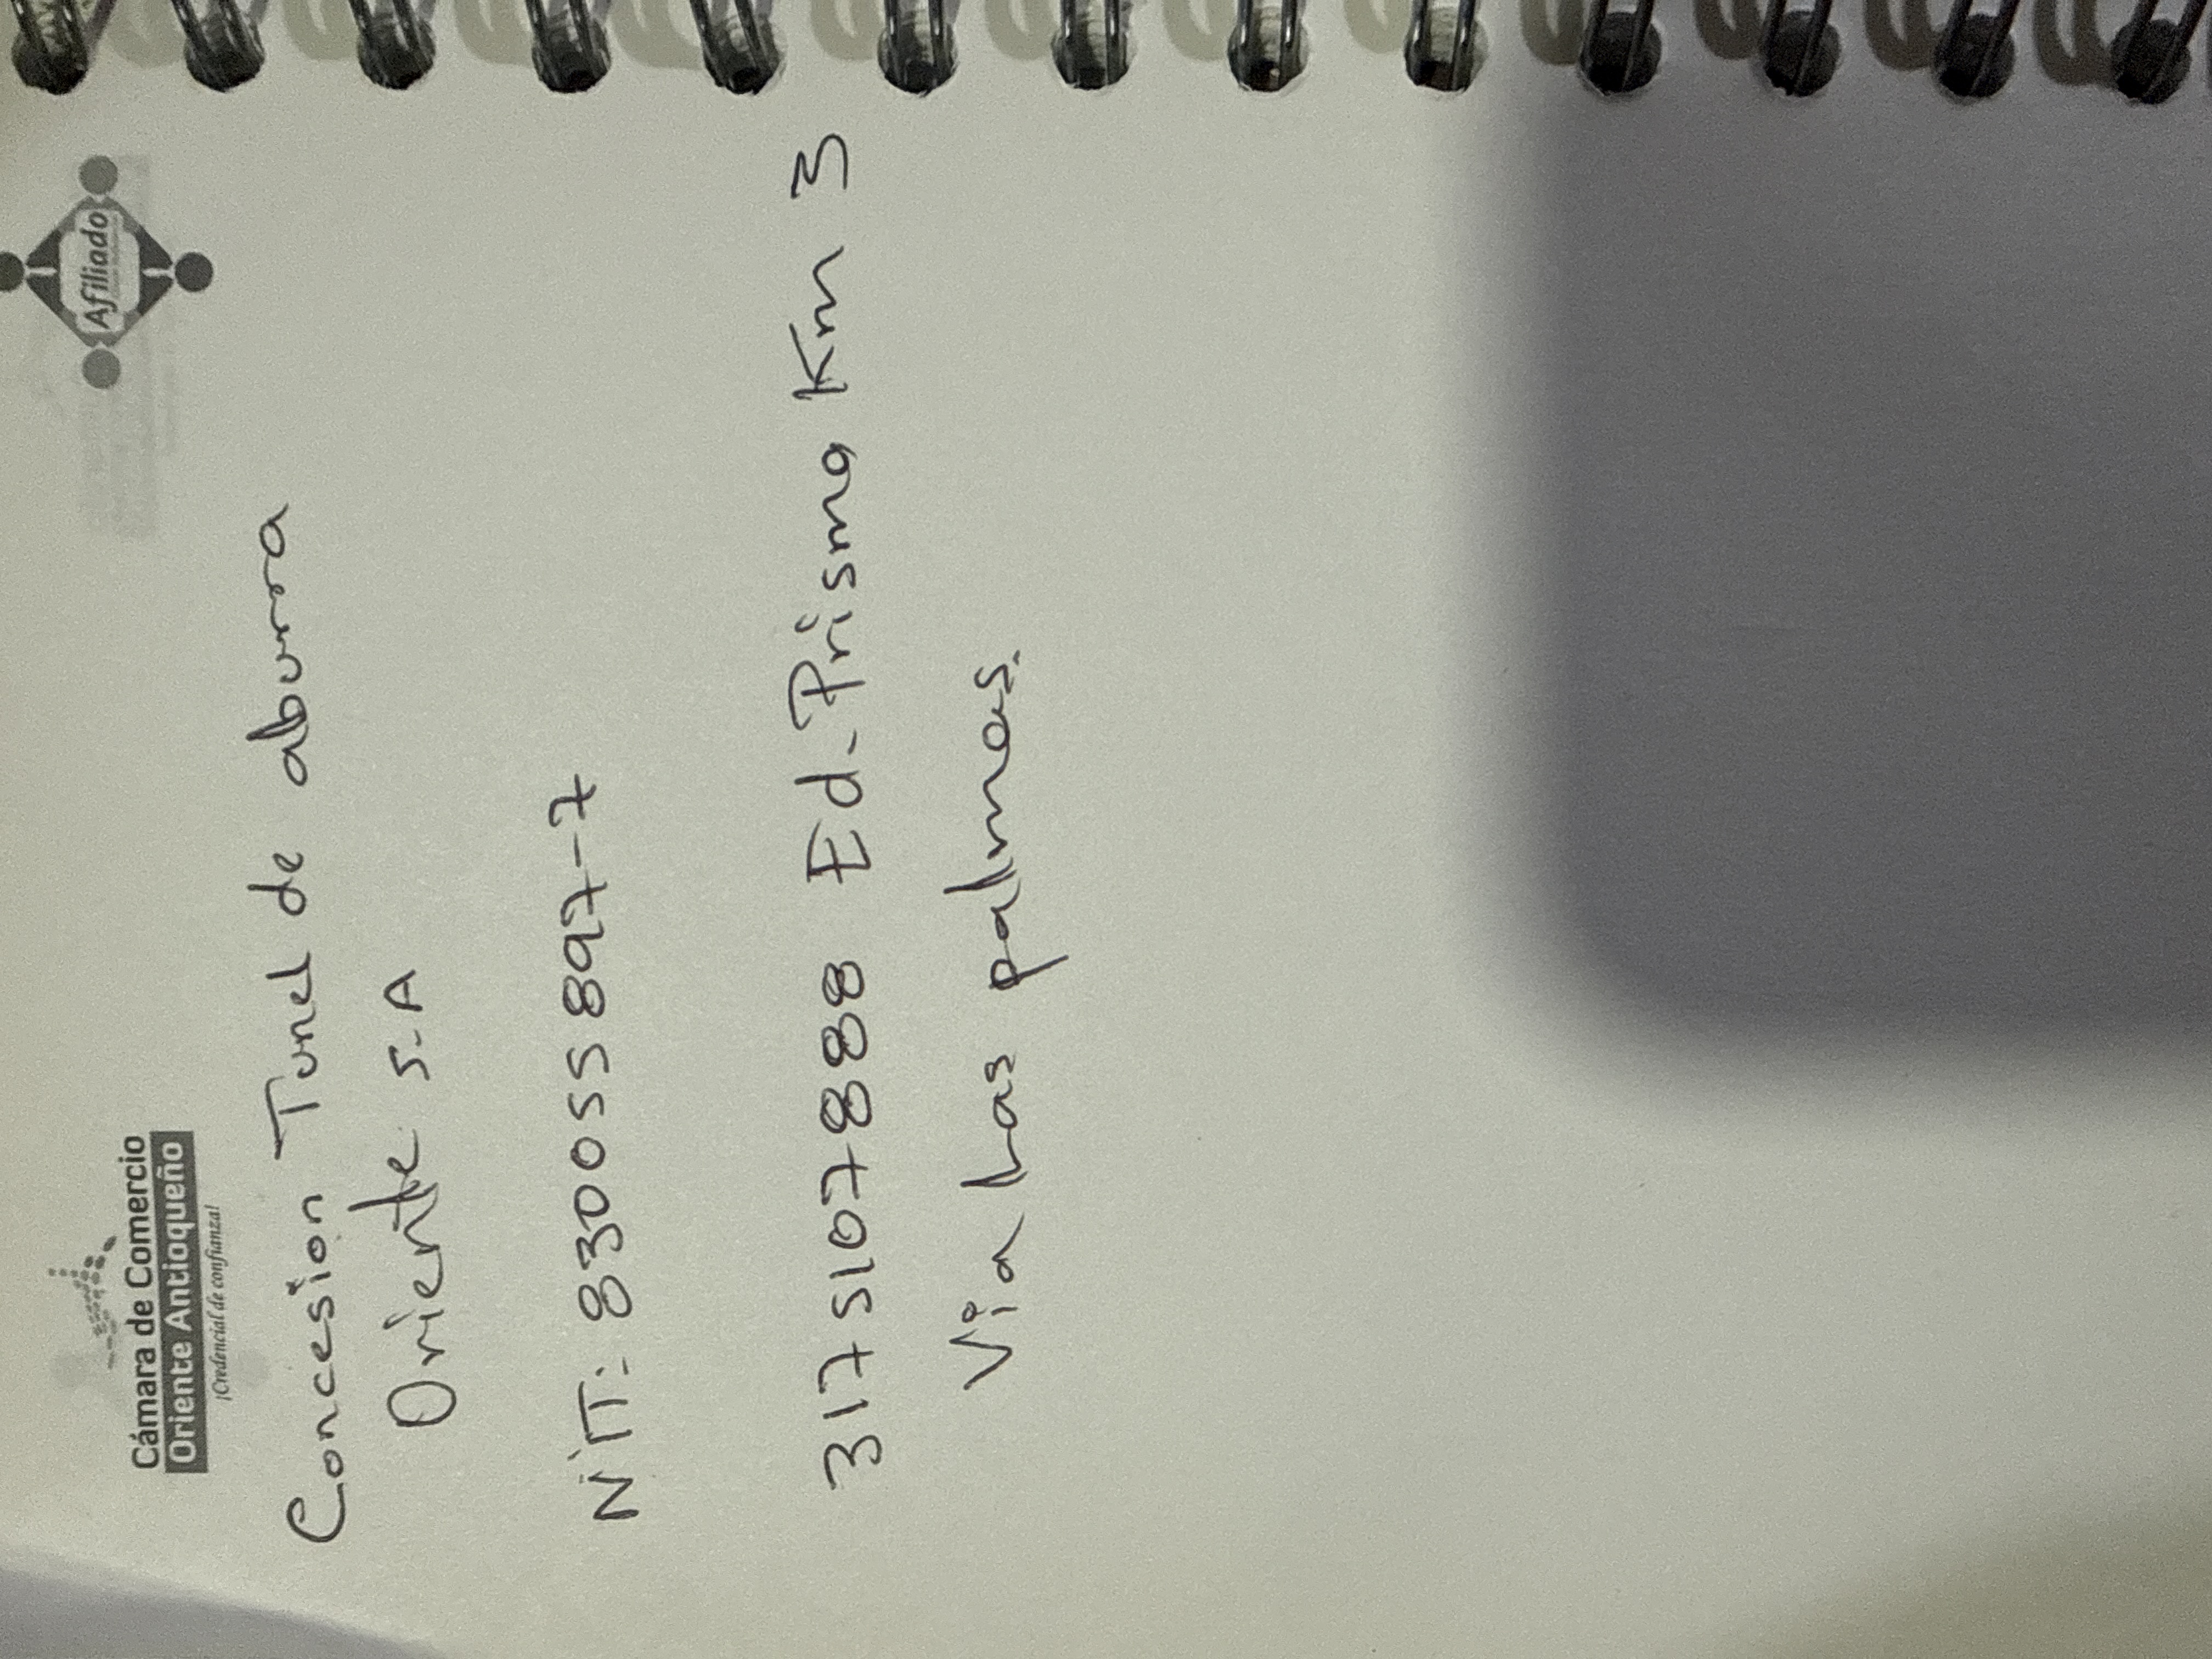 Cámara de Comercio
Oriente Antioqueño
¡Credencial de confianza!
Afiliado
Concesion Tunel de aburra
Oriente S.A
NiT: 830055897-7
3175107888 Ed. Prisma Km 3
Via Las palmas.